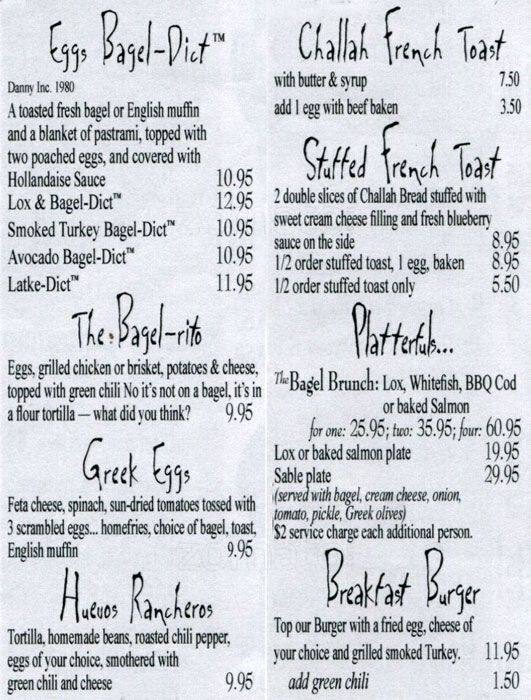 Eggs Bagel-Dict™
Danny Inc. 1980
A toasted fresh bagel or English muffin
and a blanket of pastrami, topped with
two poached eggs, and covered with
Hollandaise Sauce 10.95
Lox & Bagel-Dict™ 12.95
Smoked Turkey Bagel-Dict™ 10.95
Avocado Bagel-Dict™ 10.95
Latke-Dict™ 11.95
The Bagel-rito
Eggs, grilled chicken or brisket, potatoes & cheese,
topped with green chili No it's not on a bagel, it's in
a flour tortilla — what did you think? 9.95
Greek Eggs
Feta cheese, spinach, sun-dried tomatoes tossed with
3 scrambled eggs... homefries, choice of bagel, toast,
English muffin 9.95
Huevos Rancheros
Tortilla, homemade beans, roasted chili pepper,
eggs of your choice, smothered with
green chili and cheese 9.95
Challah French Toast
with butter & syrup 7.50
add 1 egg with beef baken 3.50
Stuffed French Toast
2 double slices of Challah Bread stuffed with
sweet cream cheese filling and fresh blueberry
sauce on the side 8.95
1/2 order stuffed toast, 1 egg, baken 8.95
1/2 order stuffed toast only 5.50
Platterfuls...
The Bagel Brunch: Lox, Whitefish, BBQ Cod
or baked Salmon
for one: 25.95; two: 35.95; four: 60.95
Lox or baked salmon plate 19.95
Sable plate 29.95
(served with bagel, cream cheese, onion,
tomato, pickle, Greek olives)
$2 service charge each additional person.
Breakfast Burger
Top our Burger with a fried egg, cheese of
your choice and grilled smoked Turkey. 11.95
add green chili 1.50